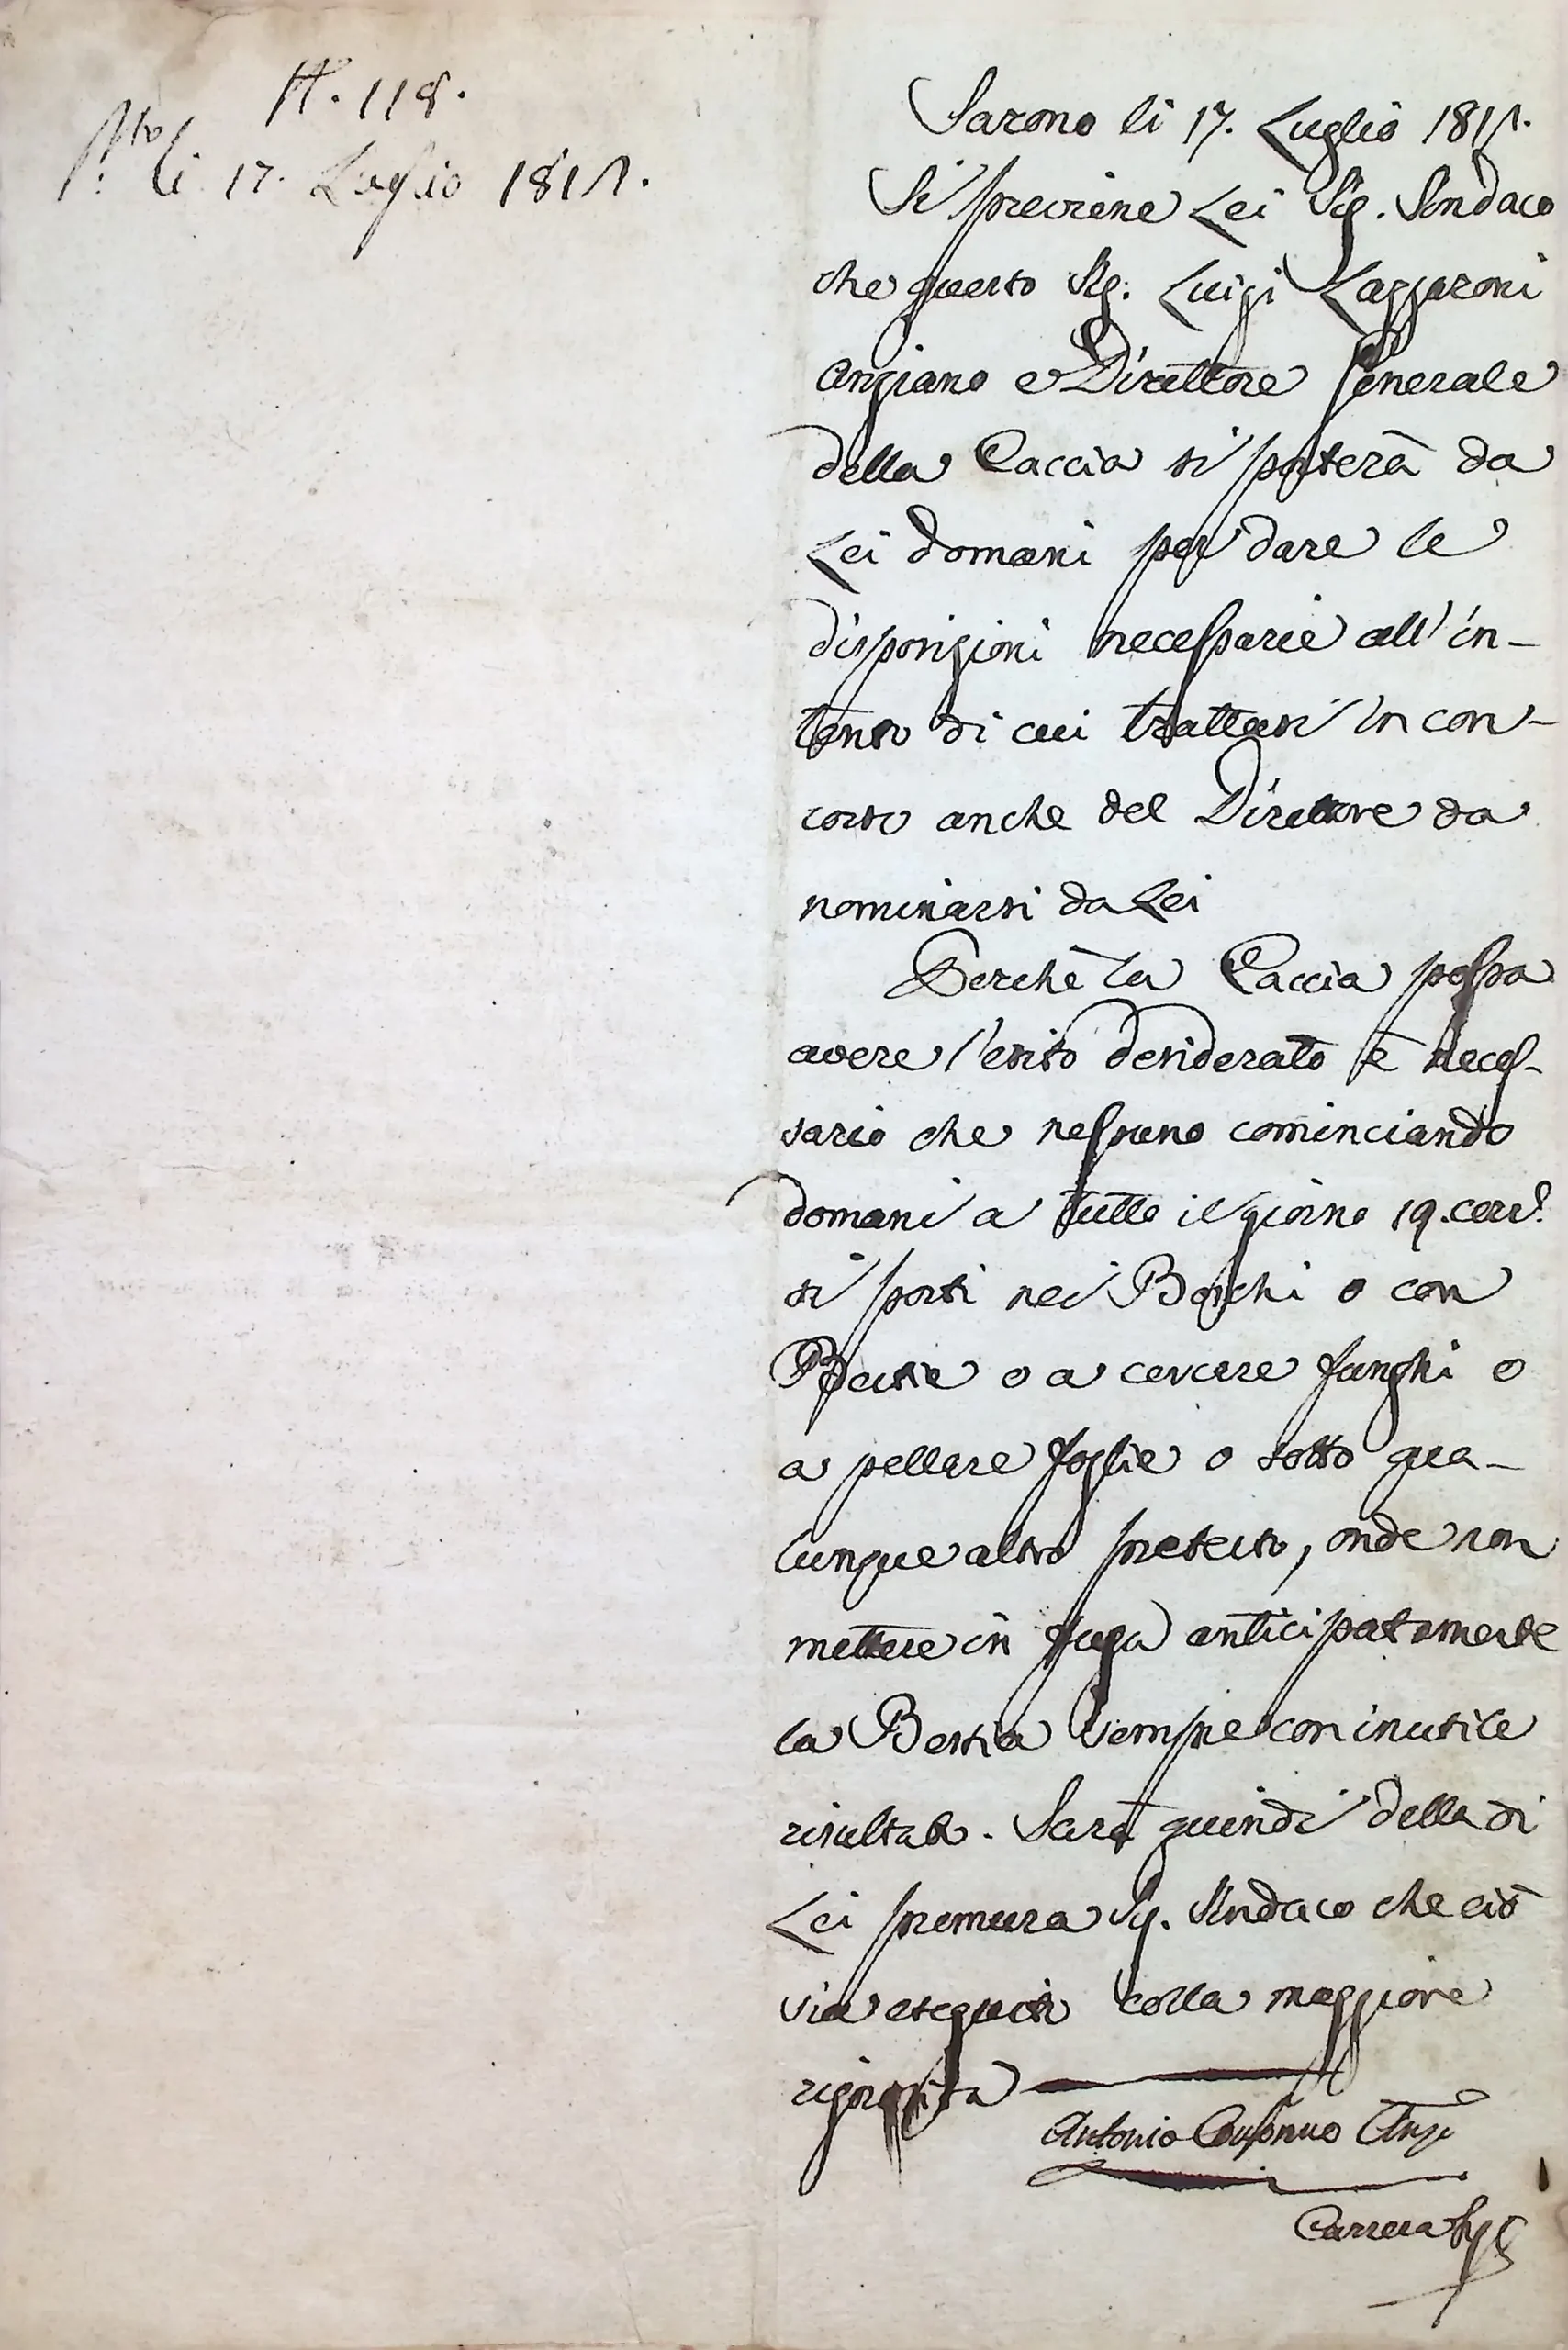 N. 118.
P.to li 17. Luglio 1815.
Sarono li 17. Luglio 1815.
Si previene Lei Sig. Sindaco
che questo Sig. Luigi Lazzaroni
Anziano e Direttore Generale
della Caccia si porterà da
Lei domani per dare le
disposizioni necessarie all'in-
tento di cui trattasi in con-
corso anche del Direttore da
nominarsi da Lei
Perchè la Caccia possa
avere l'esito desiderato è neces-
sario che nessuno cominciando
domani a tutto il giorno 19. corr.e
si porti nei Boschi o con
Bestie o a cercare funghi o
a pellare foglie o sotto qua-
lunque altro pretesto, onde non
mettere in fuga anticipatamente
la Bestia sempre con inutile
risultato. Sarà quindi della di
Lei premura Sig. Sindaco che ciò
sia eseguito colla maggiore
rigorosità
Antonio Anz.
Carrera